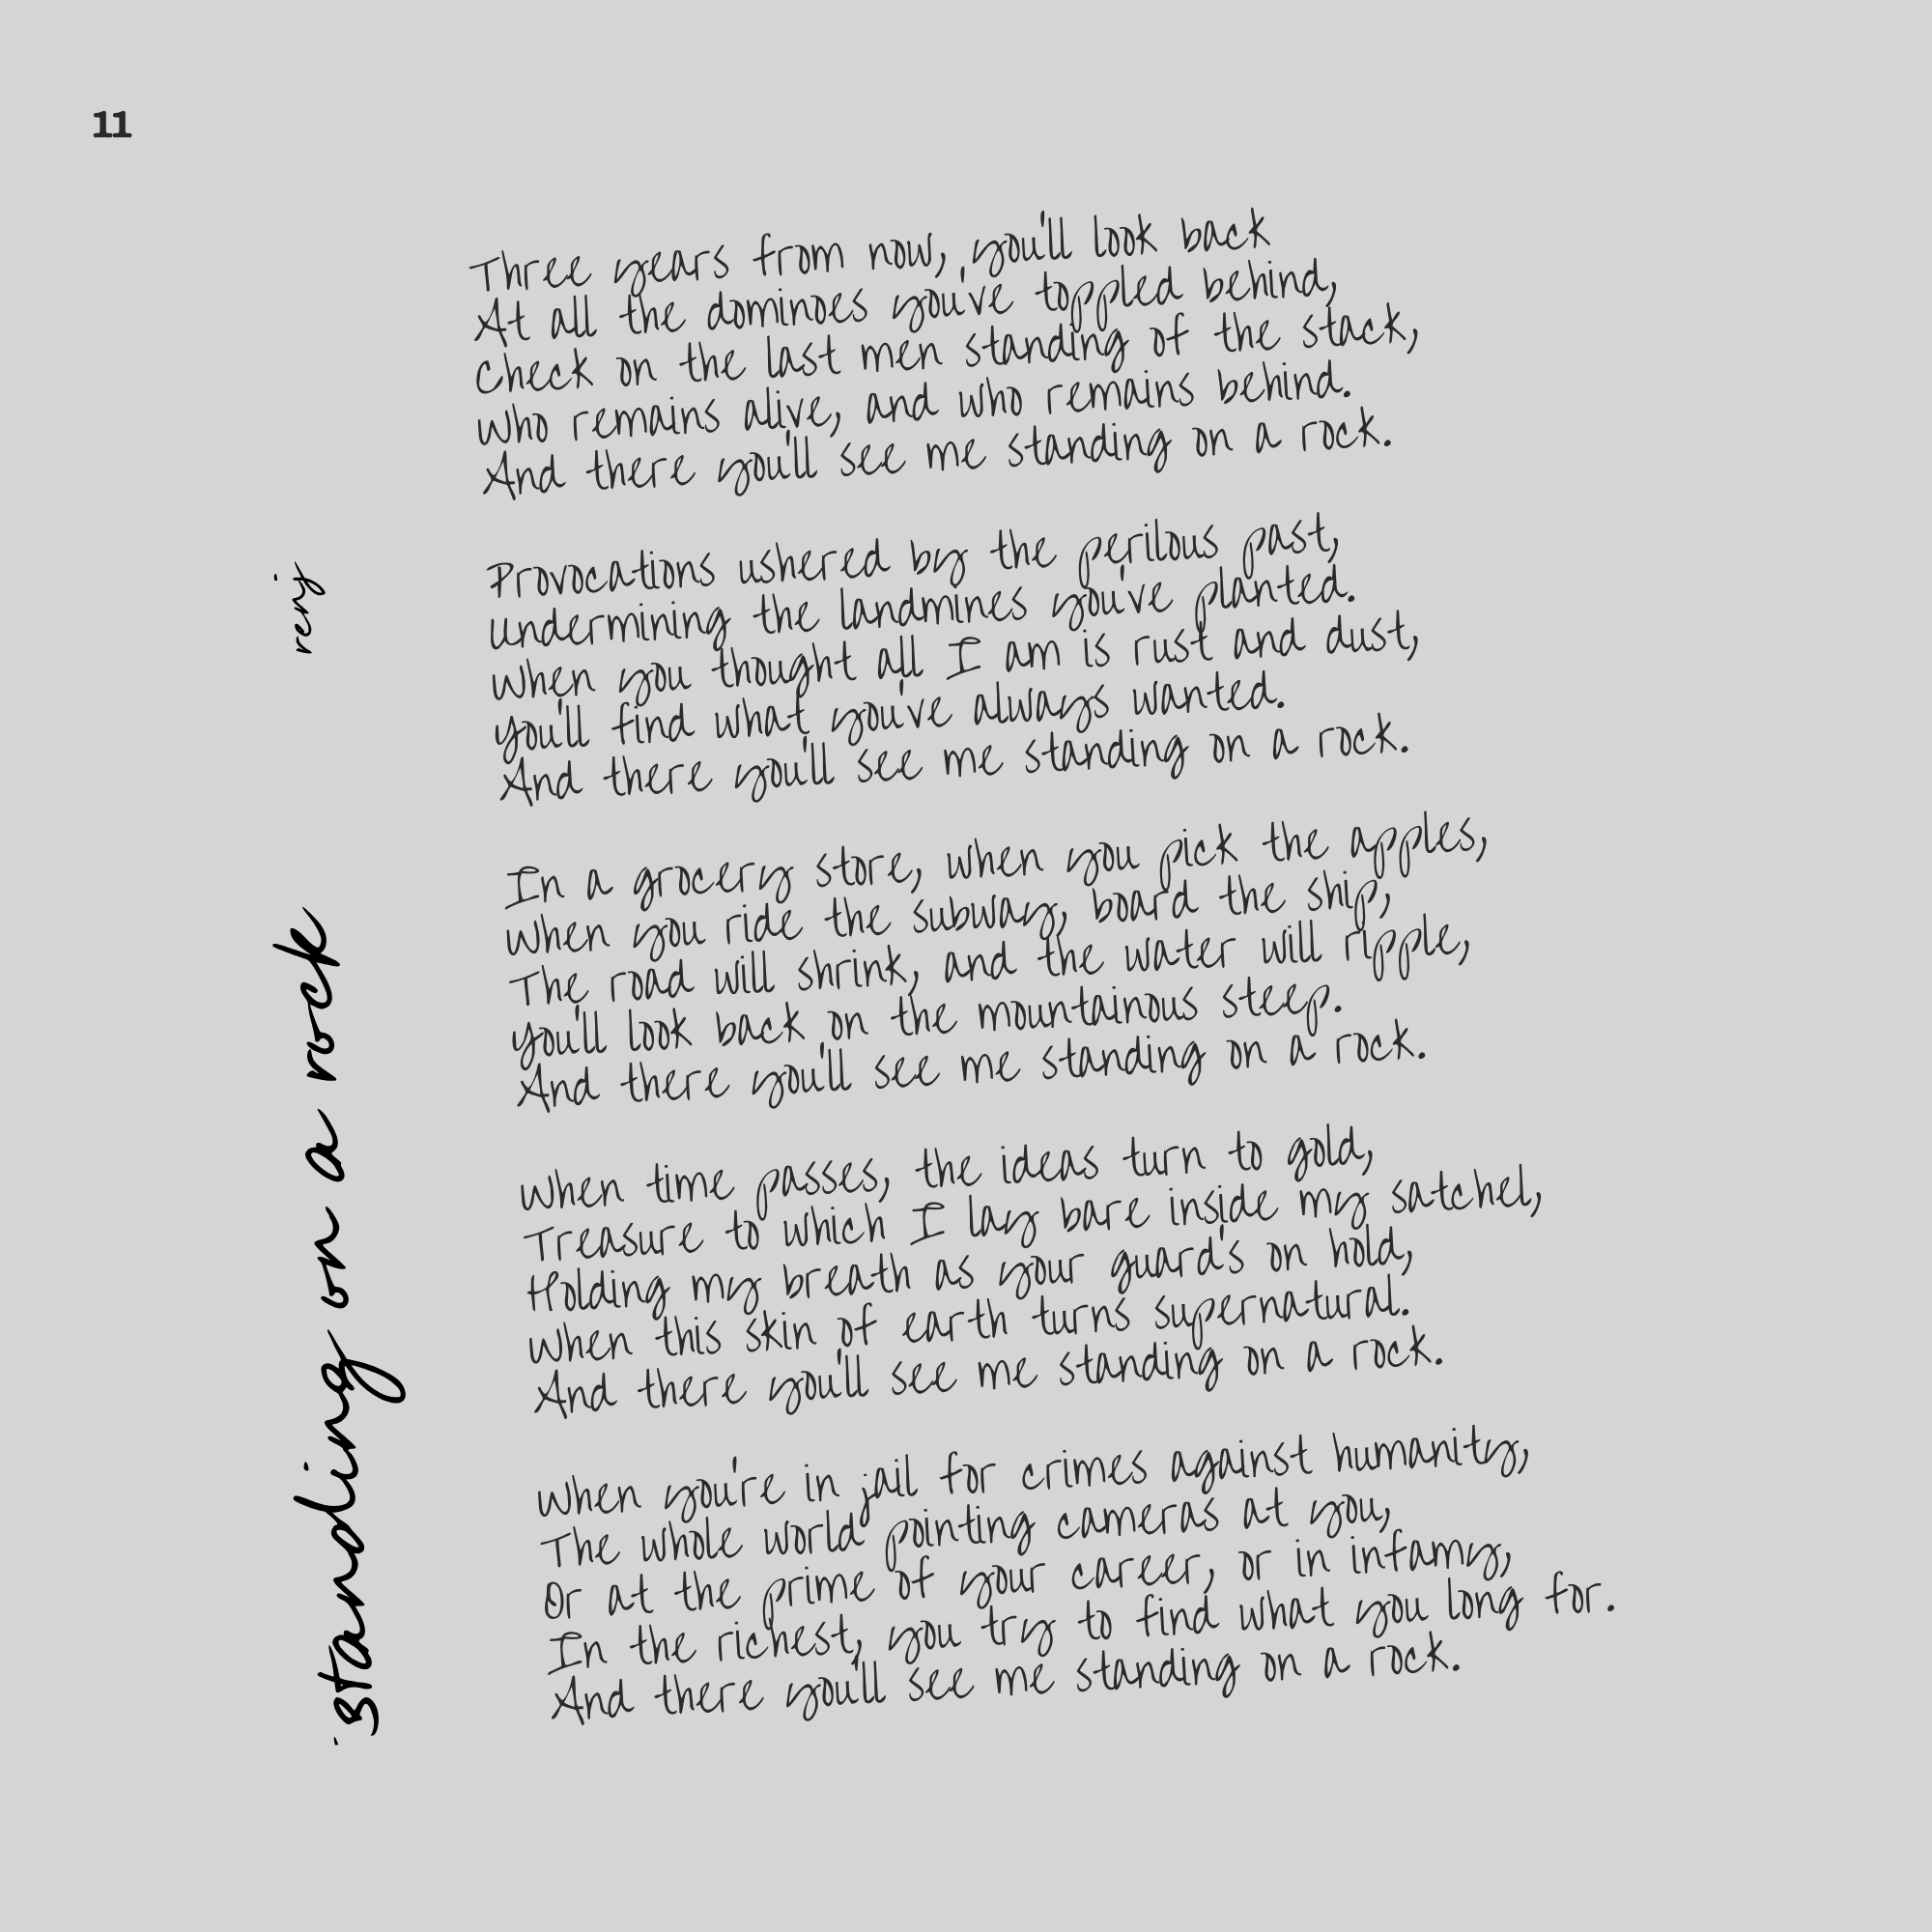 11
standing on a rock
Three years from now, you'll look back
At all the dominoes you've toppled behind,
Check on the last men standing of the stack,
Who remains alive, and who remains behind.
And there you'll see me standing on a rock.
Provocations ushered by the perilous past,
Undermining the landmines you've planted.
When you thought all I am is rust and dust,
You'll find what you've always wanted.
And there you'll see me standing on a rock.
In a grocery store, when you pick the apples,
When you ride the subway, board the ship,
The road will shrink, and the water will ripple,
You'll look back on the mountainous steep.
And there you'll see me standing on a rock.
When time passes, the ideas turn to gold,
Treasure to which I lay bare inside my satchel,
Holding my breath as your guard's on hold,
When this skin of earth turns supernatural.
And there you'll see me standing on a rock.
When you're in jail for crimes against humanity,
The whole world pointing cameras at you,
Or at the prime of your career, or in infamy,
In the richest, you try to find what you long for.
And there you'll see me standing on a rock.